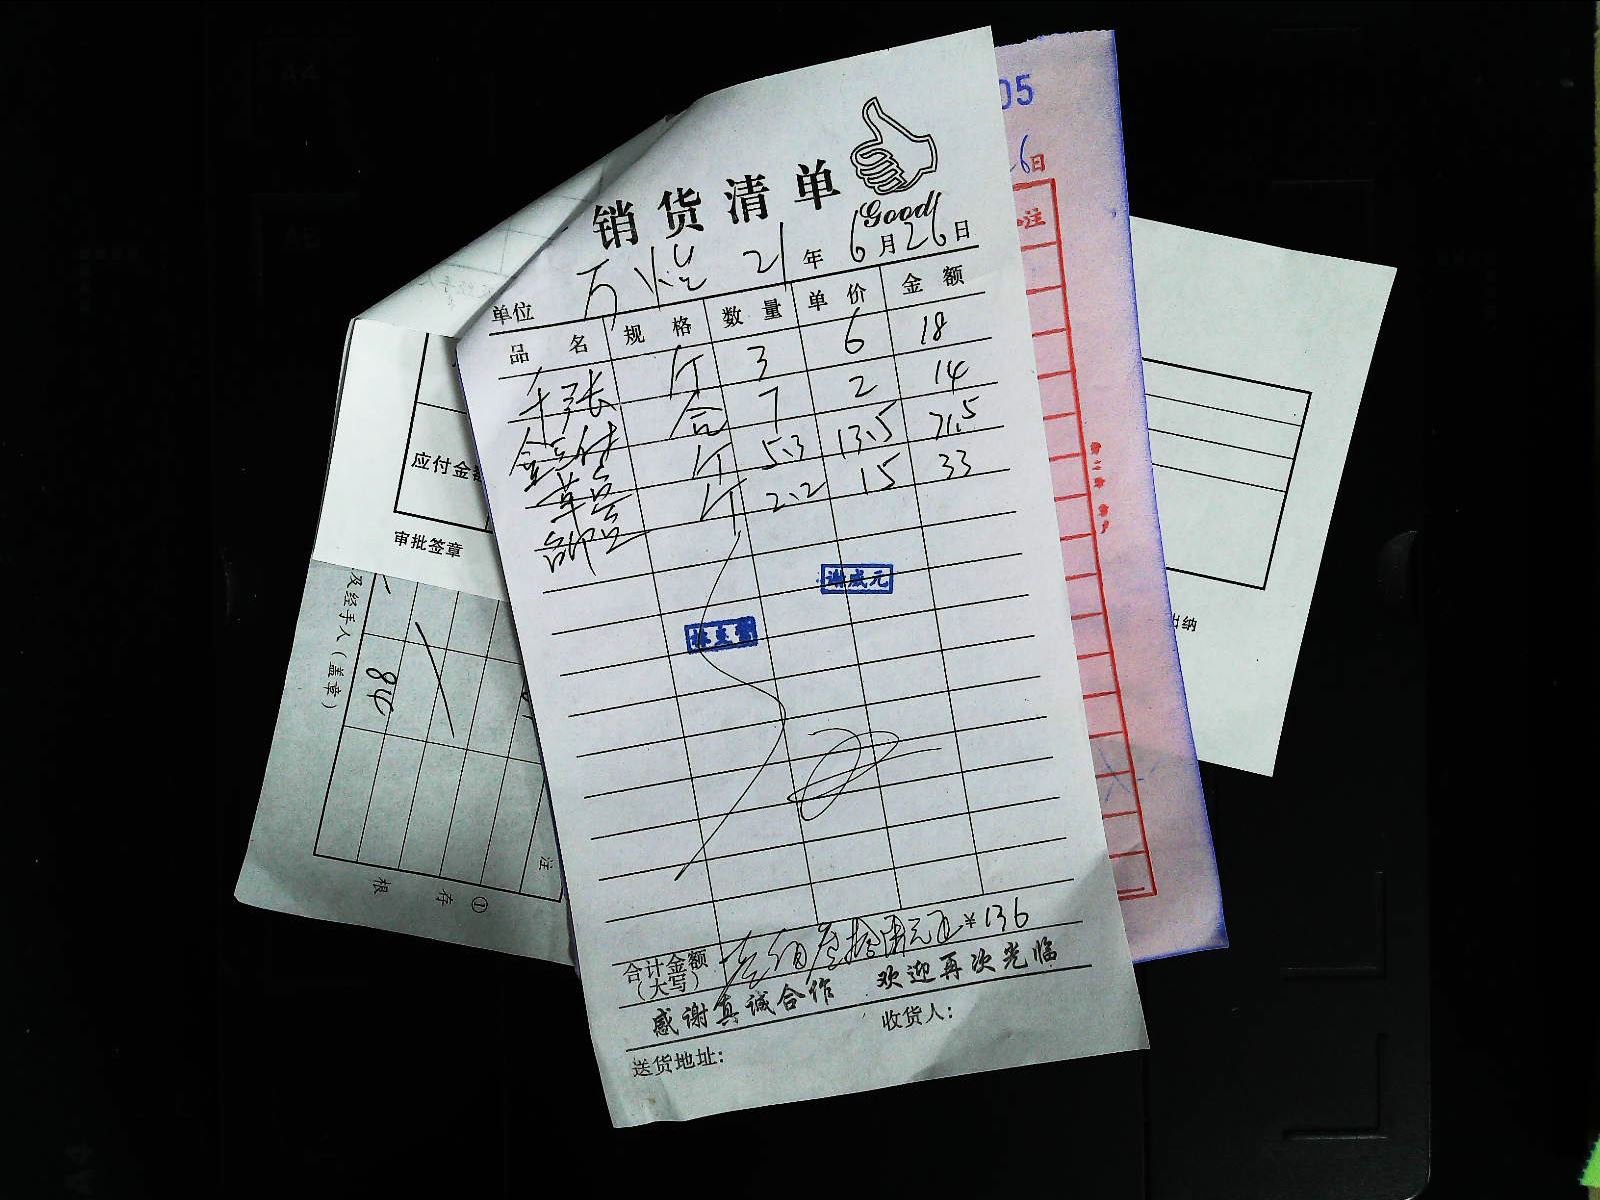 销货清单
Good
单位 万 21年6月26日
品名 规格 数量 单价 金额
千张 斤 3 6 18
合 7 2 14
斤 5.3 13.5 71.5
斤 2.2 15 33
谢成元
合计金额(大写) 壹佰叁拾陆元正 ¥136
感谢真诚合作 欢迎再次光临
收货人:
送货地址:
05
26日
注
应付金额
审批签章
及经手人(盖章)
84
注
①存根
出纳